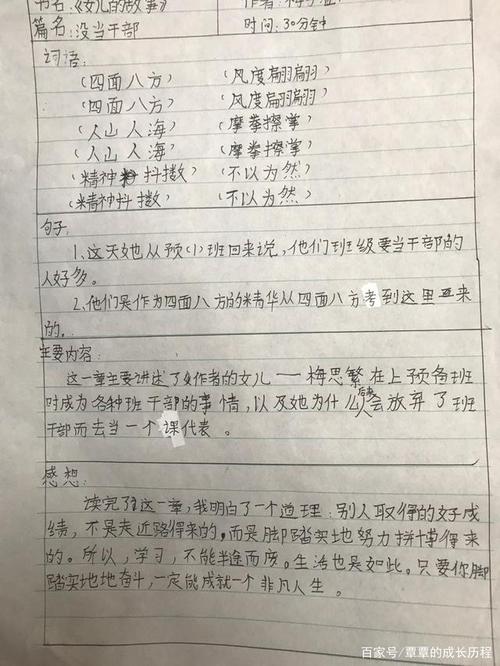 书名:《女儿的故事》
篇名:没当干部 时间:30分钟
词语:
(四面八方) (风度翩翩)
(四面八方) (风度翩翩)
(人山人海) (摩拳擦掌)
(人山人海) (摩拳擦掌)
(精神抖擞) (不以为然)
(精神抖擞) (不以为然)
句子:
1、这天她从预(1)班回来说,他们班级要当干部的
人好多。
2、他们是作为四面八方的精华从四面八方考到这里来
的.
主要内容:
这一章主要讲述了作者的女儿——梅思繁在上预备班
时成为各种班干部的事情,以及她为什么后来会放弃了班
干部而去当一个课代表。
感想:
读完了这一章,我明白了一个道理:别人取得的好成
绩,不是走近路得来的。而是脚踏实地努力拼搏得来
的。所以,学习,不能半途而废。生活也是如此。只要你脚
踏实地地奋斗,一定能成就一个非凡人生。
百家号/覃覃的成长历程